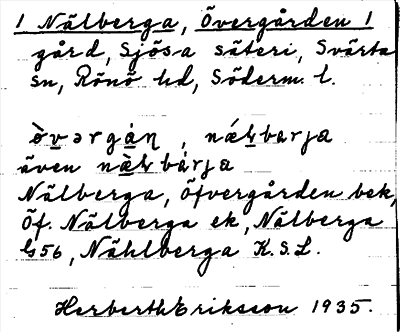 1 Nälberga, Övergården 1
gård, Sjösa säteri, Svärta
sn, Rönö hd, Söderm. l.
ø̀vərgáɳ, næ̀ɫbarja
även næ̀ɫbárja
Nälberga, Öfvergården bek,
Öf. Nälberga ek, Nälberga
Gs56, Nählberga K.S.L.
Herberth Eriksson 1935.